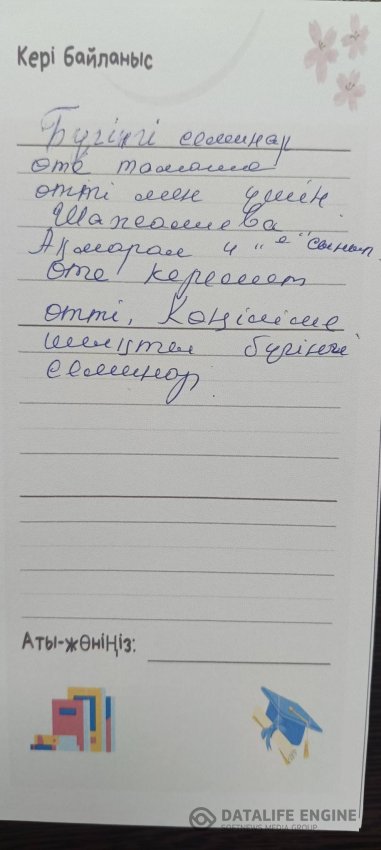 Кері байланыс
Бүгінгі семинар
өте тамаша
өтті мен үшін
Шажалиева
Ақмарал 4 "е" сынып
Өте керемет
өтті, Көңіліме
бүгінгі
семинар.
Аты-жөніңіз:
DATALIFE ENGINE
SOFTNEWS MEDIA GROUP